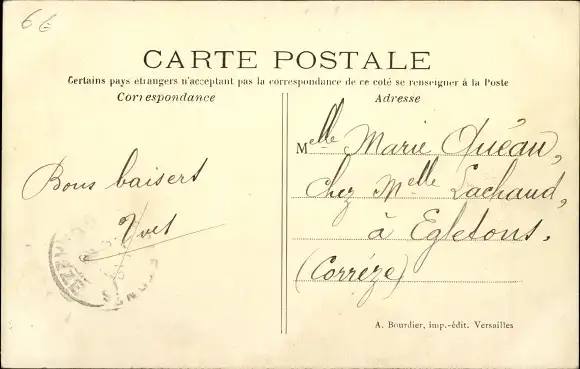 6 €
CARTE POSTALE
Certains pays étrangers n'acceptant pas la correspondance de ce coté se renseigner à la Poste
Correspondance
Adresse
Bons baisers
Yves
Melle Marie Quéau,
chez Melle Lachaud,
à Egletons.
(Corrèze)
A. Bourdier, imp.-édit. Versailles